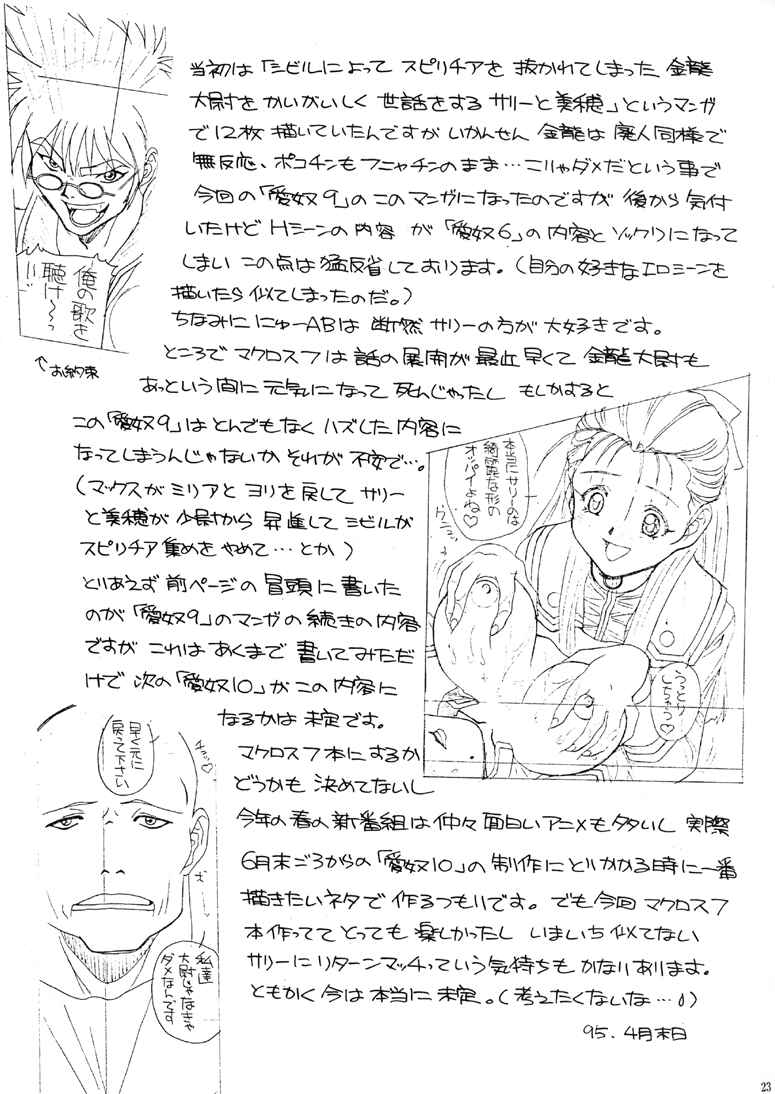 当初は「シビルによって スピリチアを 抜かれてしまった 金龍
大尉を かいがいしく 世話をする サリーと美穂」というマンガ
で12枚 描いていたんですが いかんせん 金龍は 廃人同様で
無反応、ポコチンもフニャチンのまま…こりゃダメだという事で
今回の「愛奴9」のこのマンガになったのですが 後から 気付
いたけど Hシーンの内容 が「愛奴6」の内容と ソックリになって
しまい この点は猛反省しております。(自分の好きなエロシーンを
描いたら 似てしまったのだ。)
ちなみに にゅーABは 断然 サリーの方が 大好きです。
ところで マクロス7は 話の展開が 最近 早くて 金龍大尉も
あっという間に 元気になって 死んじゃったし もしかすると
この「愛奴9」はとんでもなく ハズした内容に
なってしまうんじゃないか それが 不安で…。
(マックスが ミリアと ヨリを戻して サリー
と美穂が 少尉から 昇進して シビルが
スピリチア集めをやめて…とか)
とりあえず 前ページの冒頭に書いた
のが「愛奴9」のマンガの続きの内容
ですが これは あくまで 書いてみただ
けで 次の「愛奴10」が この内容に
なるかは 未定です。
マクロス7本にするか
どうかも 決めてないし
今年の春の新番組は 仲々 面白いアニメも多いし 実際
6月末ごろからの「愛奴10」の制作にとりかかる時に一番
描きたいネタで作るつもりです。でも今回 マクロス7
本作ってて とっても 楽しかったし いまいち 似てない
サリーに リターンマッチっていう気持ちも かなりあります。
ともかく 今は 本当に 未定。(考えたくないな…)
95.4月末日
俺の歌を
聴け〜っ
!!
↑お約束
本当にサリーのは
綺麗な形の
オッパイよね♡
うっとりしちゃう♡
早く元に
戻って下さい
私達
大尉じゃなきゃ
ダメなんです
23